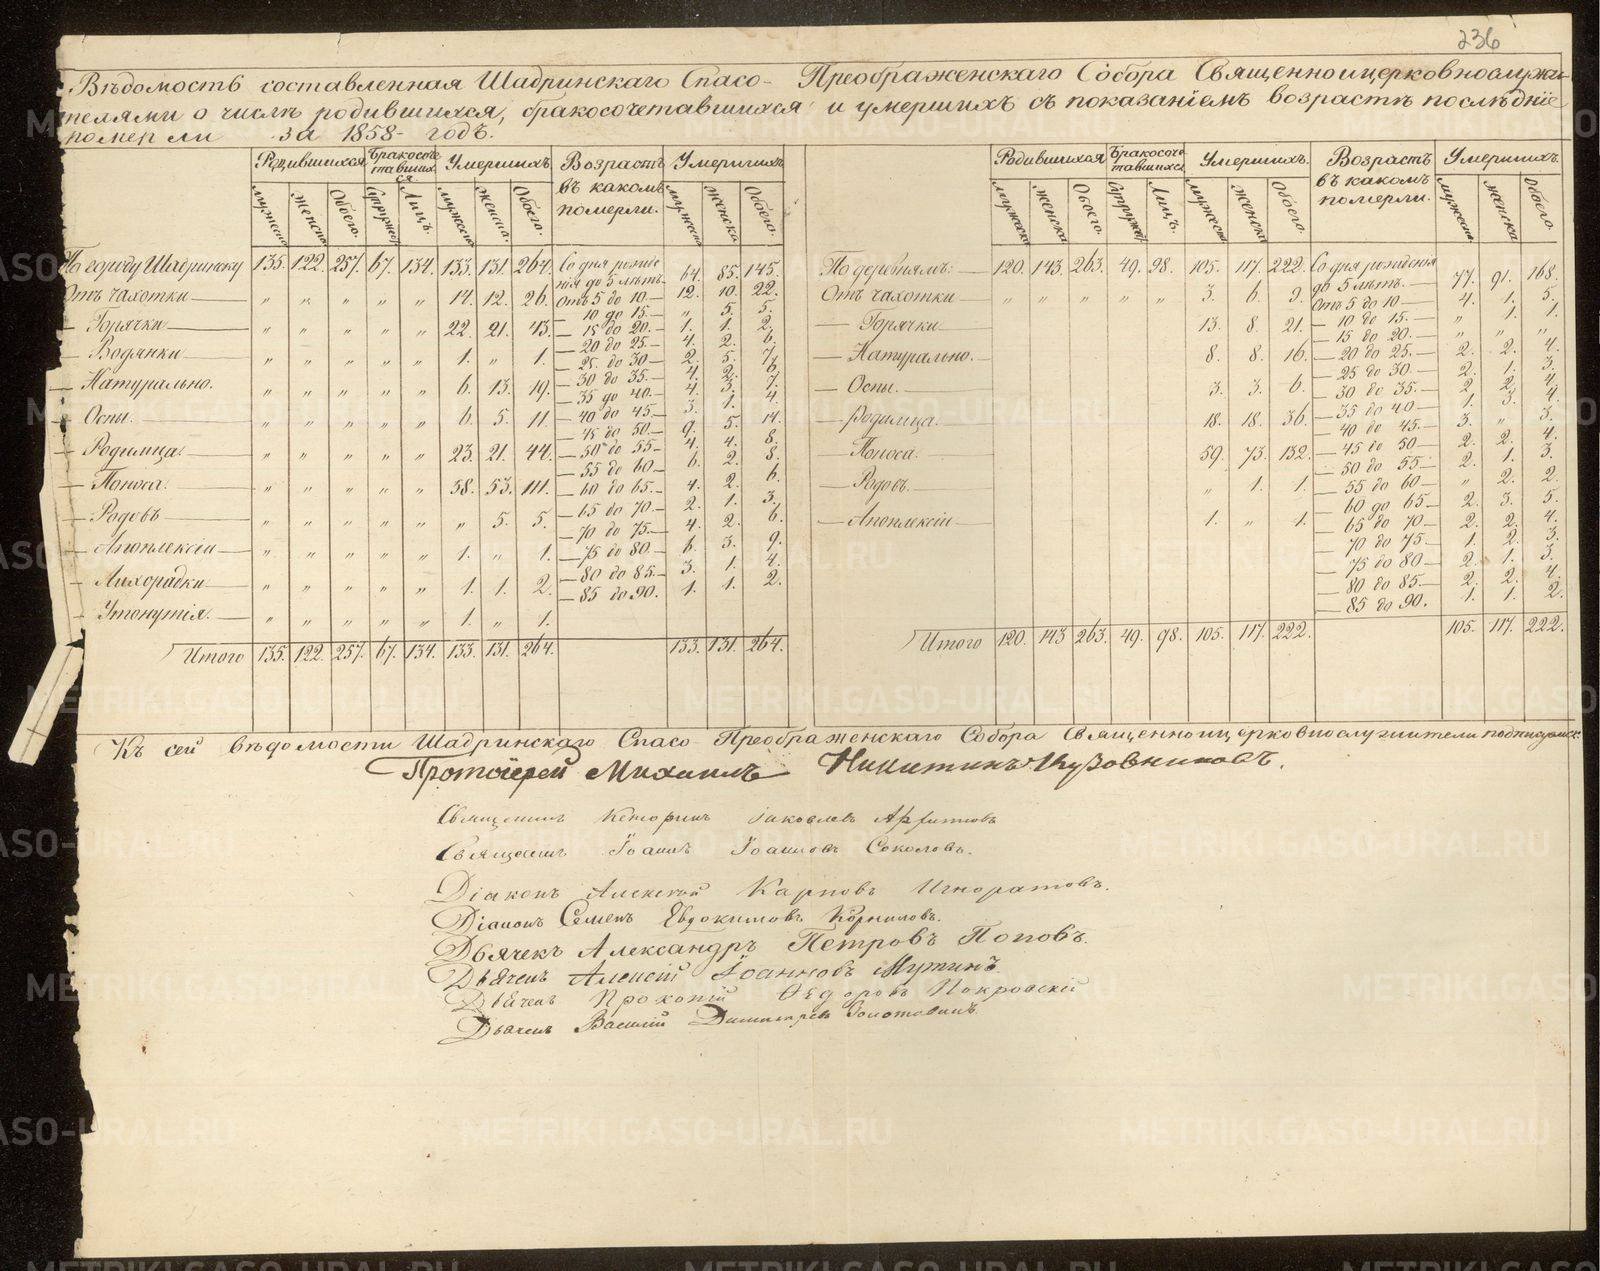 236
Вѣдомость составленная Шадринскаго Спасо- Преображенскаго Собора Священноицерковнослужи-
телями о числѣ родившихся, бракосочетавшихся и умершихъ съ показаніемъ возрастѣ послѣднiе
померли за 1858- годъ.
Родившихся Бракосоче Умершихъ. Возрастъ Умершихъ. Родившихся Бракосоче Умершихъ. Возрастъ Умершихъ.
тавших тавшихся
ся въ какомъ въ какомъ
померли. померли.
мужеска женска Обоего. Супружес. Лицъ. мужеска женска. Обоего. мужеска женска. Обоего. мужеска женска Обоего. Супружес. Лицъ. мужеска женска Обоего. мужеска женска Обоего.
По городу Шадринску 135. 122. 257. 67. 134. 133. 131. 264.
Отъ чахотки „ „ „ „ „ 14. 12. 26.
— Горячки „ „ „ „ „ 22. 21. 43.
— Водянки „ „ „ „ „ 1. „ 1.
— Натурально. „ „ „ „ „ 6. 13. 19.
— Оспы. „ „ „ „ „ 6. 5. 11.
— Родимца. „ „ „ „ „ 23. 21. 44.
— Поноса. „ „ „ „ „ 58. 53. 111.
— Родовъ „ „ „ „ „ „ 5. 5.
— Апоплексіи „ „ „ „ „ 1. „ 1.
— Лихорадки „ „ „ „ „ 1. 1. 2.
— Утонутія. „ „ „ „ „ 1. „ 1.
Итого 135. 122. 257. 67. 134. 133. 131. 264. 133. 131. 264.
Со дня рожде
нія до 5 лѣтъ. 64. 85. 145.
Отъ 5 до 10.— 12. 10. 22.
— 10 до 15.— „ 5. 5.
— 15 до 20.— 1. 1. 2.
— 20 до 25.— 4. 2. 6.
— 25 до 30— 2. 5. 7.
— 30 до 35.— 4. 2. 6.
— 35 до 40.— 4. 3. 7.
— 40 до 45.— 3. 1. 4.
— 45 до 50.— 9. 5. 14.
— 50 до 55— 4. 4. 8.
— 55 до 60— 6. 2. 8.
— 60 до 65.— 4. 2. 6.
— 65 до 70.— 2. 1. 3.
— 70 до 75.— 4. 2. 6.
— 75 до 80.— 6. 3. 9.
— 80 до 85.— 3. 1. 4.
— 85 до 90. 1. 1. 2.
По деревнямъ: 120. 143. 263. 49. 98. 105. 117. 222.
Отъ чахотки „ „ „ „ „ 3. 6. 9.
— Горячки 13. 8. 21.
— Натурально. 8. 8. 16.
— Оспы. 3. 3. 6.
— Родимца. 18. 18. 36.
— Поноса. 59. 73. 132.
— Родовъ „ 1. 1.
— Апоплексіи 1. „ 1.
Итого 120. 143 263. 49. 98. 105. 117. 222. 105. 117. 222.
Со дня рожденія
до 5 лѣтъ. 77. 91. 168.
Отъ 5 до 10— 4. 1. 5.
— 10 до 15.— „ 1. 1.
— 15 до 20.— „ „ „
— 20 до 25.— 2. 2. 4.
— 25 до 30.— 2. 1. 3.
— 30 до 35.— 2. 2. 4.
— 35 до 40— 1. 3. 4.
— 40 до 45.— 3. „ 3.
— 45 до 50— 2. 2. 4.
— 50 до 55.— 2. 1. 3.
— 55 до 60— „ 2. 2.
— 60 до 65— 2. 3. 5.
— 65 до 70— 2. 2. 4.
— 70 до 75— 1. 2. 3.
— 75 до 80— 2. 1. 3.
— 80 до 85.— 2. 2. 4.
— 85 до 90. 1. 1. 2.
Къ сей вѣдомости Шадринскаго Спасо Преображенскаго Собора Священноицерковнослужители подписуемся:
Протоіерей Михаилъ Никитинъ Кузовниковъ.
Священникъ Іаковлевъ
Священникъ Іоаннъ Іоанновъ Соколовъ.
Діаконъ Алексей Карповъ Игноратовъ.
Діаконъ Семенъ Евдокимовъ Корниловъ.
Дьячекъ Александръ Петровъ Поповъ.
Дьячекъ Алексій Іоанновъ Мутинъ.
Дьячекъ Прокопій Ѳедоровъ Покровскій
Дьячекъ Василій Димитріевъ
METRIKI.GASO-URAL.RU